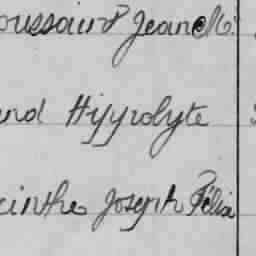 oussaint Jean
nd Hippolyte
cinthe Joseph Félix